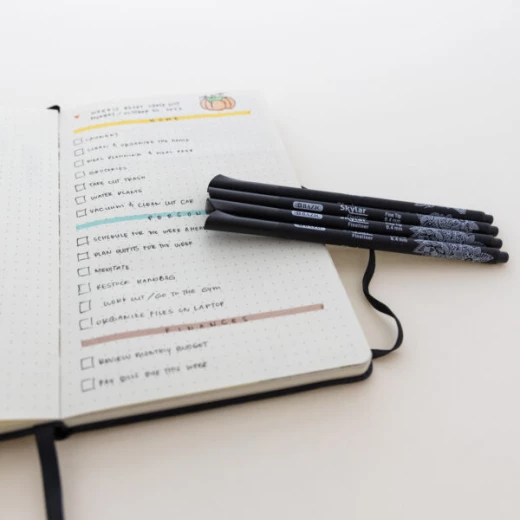 WEEKLY RESET CHECKLIST
HOME
LAUNDRY
CLEAN & ORGANIZE THE
MEAL PLANNING & MEAL PREP
GROCERIES
TAKE OUT TRASH
WATER PLANTS
VACUUM & CLEAN OUT CAR
PERSON
SCHEDULE FOR THE WEEK AHEAD
PLAN OUTFITS FOR THE WEEK
MEDITATE
RESTOCK HANDBAG
WORK OUT / GO TO THE GYM
ORGANIZE FILES ON LAPTOP
FINANCES
REVIEW MONTHLY BUDGET
PAY BILLS DUE THIS WEEK
BAZIC
Skylar
Fineliner
0.4 mm
Fineliner
0.4 mm